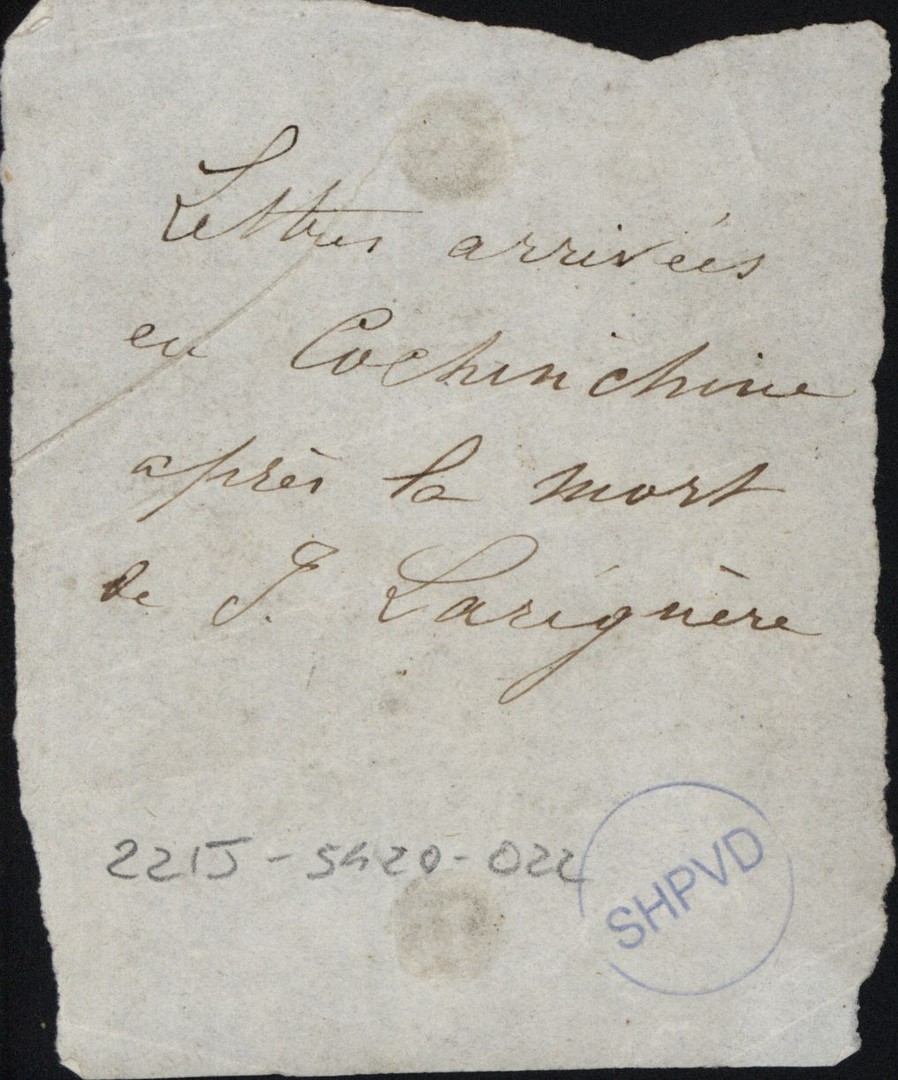 Lettres arrivées
en Cochinchine
après la mort
de J. Lariguère
221J-5420-022
SHPVD